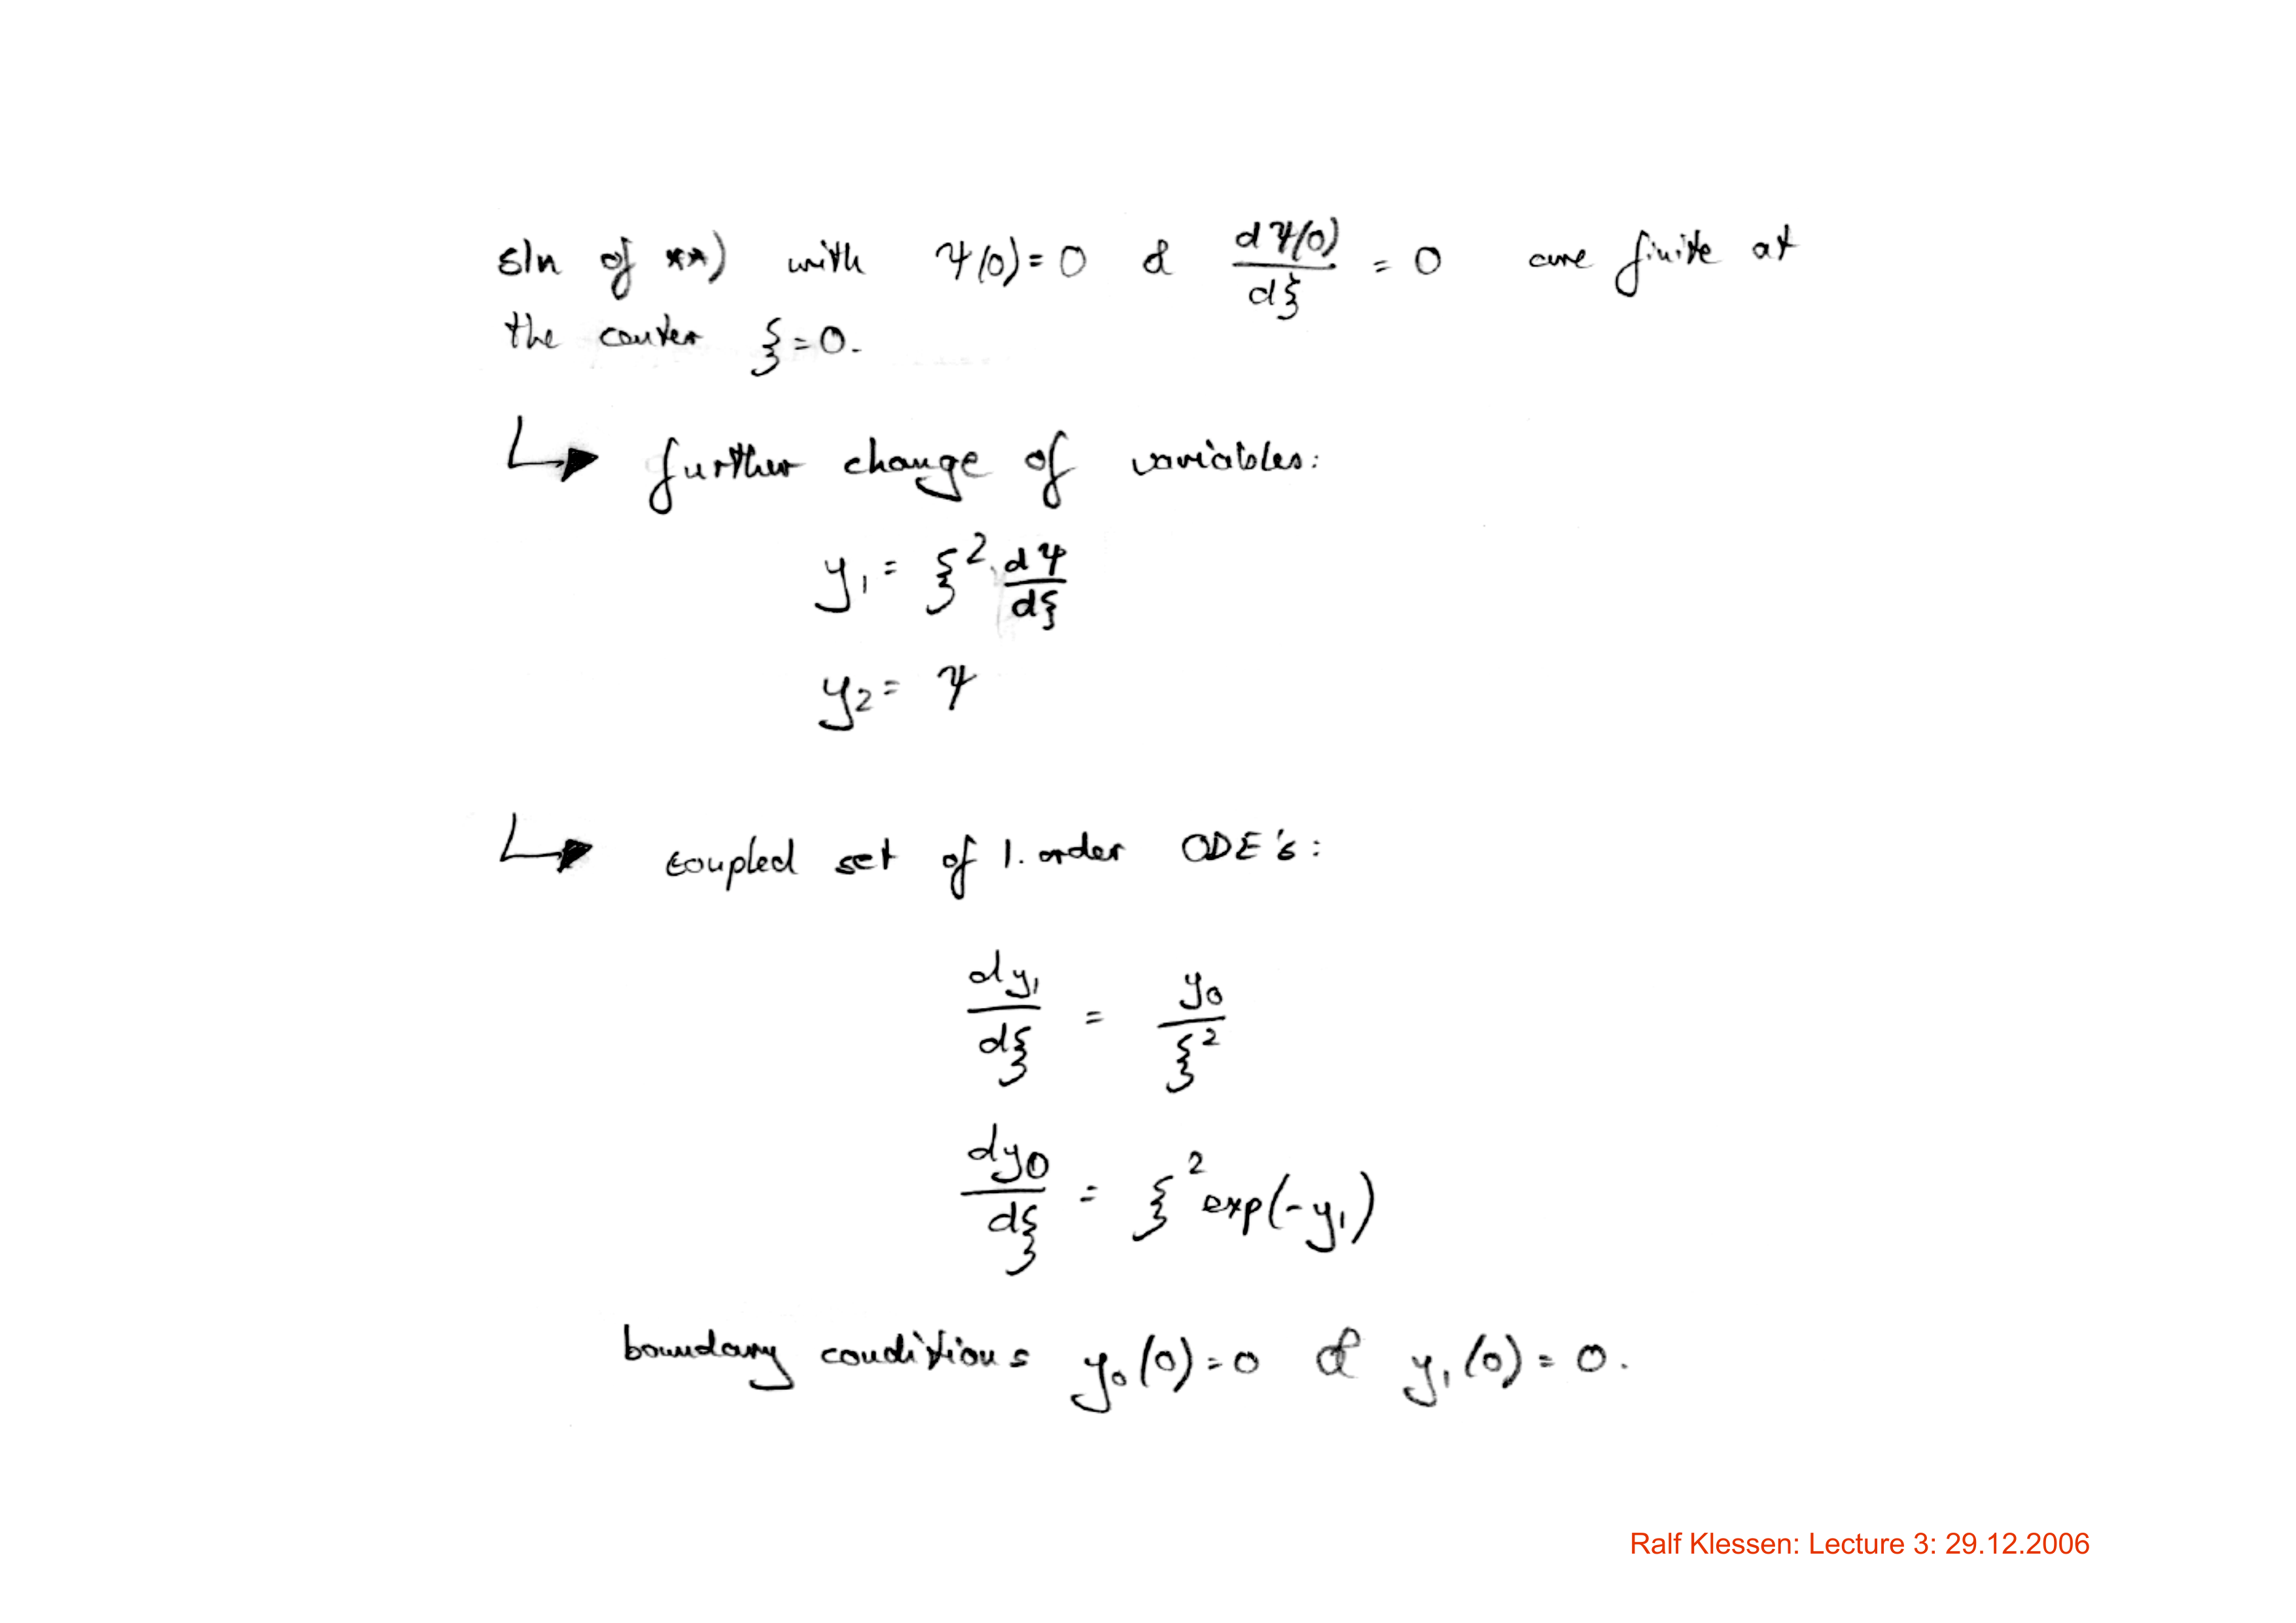 sln of **) with ψ(0) = 0 & dψ(0)/dξ = 0 are finite at
the center ξ = 0.
↳ further change of variables:
y₁ = ξ² dψ/dξ
y₂ = ψ
↳ coupled set of 1. order ODE's:
dy₁/dξ = y₀/ξ²
dy₀/dξ = ξ² exp(-y₁)
boundary conditions y₀(0) = 0 & y₁(0) = 0.
Ralf Klessen: Lecture 3: 29.12.2006